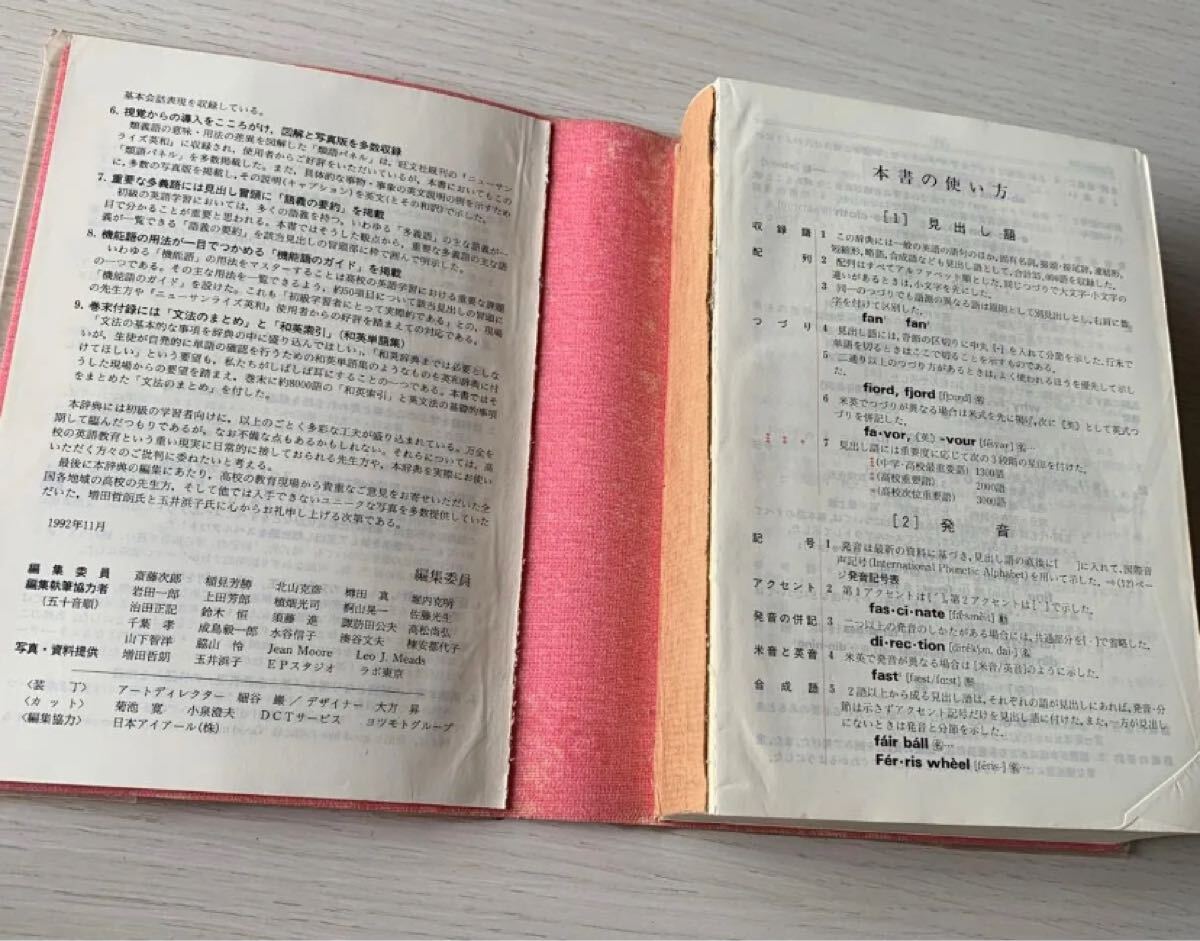 基本会話表現を収録している。
6. 視覚からの導入をこころがけ，図解と写真版を多数収録
類義語の意味・用法の差異を図解した「類語パネル」は，旺文社既刊の『ニューサン
ライズ英和』に収録され，使用者からご好評をいただいているが，本書においてもこの
「類語パネル」を多数掲載した。また，具体的な事物・事象の英文説明の例を示すため
に，多数の写真版を掲載し，その説明(キャプション)を英文(とその和訳)で示した。
7. 重要な多義語には見出し冒頭に「語義の要約」を掲載
初級の英語学習においては，多くの語義を持つ，いわゆる「多義語」の主な語義が一
目で分かることが重要と思われる。本書ではそうした観点から，重要な多義語の主な語
義が一覧できる「語義の要約」を該当見出しの冒頭部に枠で囲んで明示した。
8. 機能語の用法が一目でつかめる「機能語のガイド」を掲載
いわゆる「機能語」の用法をマスターすることは高校の英語学習における重要な課題
の一つである。その主な用法を一覧できるよう，約50項目について該当見出しの冒頭に
「機能語のガイド」を設けた。これも「初級学習者にとって実際的である」との，現場
の先生方や『ニューサンライズ英和』使用者からの好評を踏まえての対応である。
9. 巻末付録には「文法のまとめ」と「和英索引」(和英単語集)
「文法の基本的な事項を辞典の中に盛り込んでほしい」，「和英辞典までは必要としな
いが，生徒が自発的に単語の確認を行うための和英単語集のようなものを英和辞典に付
けてほしい」という要望も，私たちがしばしば耳にすることの一つである。本書ではそ
うした現場からの要望を踏まえ，巻末に約8000語の「和英索引」と英文法の基礎的事項
をまとめた「文法のまとめ」を付した。
本辞典には初級の学習者向けに，以上のごとく多彩な工夫が盛り込まれている。万全を
期して臨んだつもりであるが，なお不備な点もあるかもしれない。それらについては，高
校の英語教育という重い現実に日常的に接しておられる先生方や，本辞典を実際にお使い
いただく方々のご批判に委ねたいと考える。
最後に本辞典の編集にあたり，高校の教育現場から貴重なご意見をお寄せいただいた全
国各地域の高校の先生方，そして他では入手できないユニークな写真を多数提供していた
だいた，増田哲朗氏と玉井浜子氏に心からお礼申し上げる次第である。
1992年11月
編集委員
編集委員 斎藤次郎 稲見芳勝 北山克彦 樽田 真 堀内克明
編集執筆協力者 岩田一郎 上田芳郎 植畑光司 桐山晃一 佐藤光生
(五十音順) 治田正記 鈴木 恒 須藤 進 諏訪田公夫 高松尚弘
千葉 孝 成島毅一郎 水谷信子 湊谷文夫 棟安都代子
山下智洋 脇山 怜 Jean Moore Leo J. Meads
写真・資料提供 増田哲朗 玉井浜子 EPスタジオ ラボ東京
〈装 丁〉 アートディレクター 細谷 巖／デザイナー 大万 昇
〈カット〉 菊池 寛 小泉澄夫 DCTサービス ヨツモトグループ
〈編集協力〉 日本アイアール(株)
本書の使い方
[1] 見出し語
収録語 1 この辞典には一般の英語の語句のほか，固有名詞，接頭・接尾辞，連結形，
短縮形，略語，合成語なども見出し語として，合計35,000語を収録した。
配列 2 配列はすべてアルファベット順とした。同じつづりで大文字・小文字の
違いがあるときは，小文字を先にした。
3 同一のつづりでも語源の異なる語は原則として別見出しとし，右肩に数
字を付けて区別した。
fan¹ fan²
つづり 4 見出し語には，音節の区切りに中丸[・]を入れて分節を示した。行末で
単語を切るときはここで切ることを示すものである。
5 二通り以上のつづり方があるときは，よく使われるほうを優先して示し
た。
fiord, fjord [fjɔːrd] 名
6 米英でつづりが異なる場合は米式を先に掲げ，次に《英》として英式つ
づりを併記した。
fa・vor, 《英》-vour [féivər] 名…
7 見出し語には重要度に応じて次の3段階の星印を付けた。
(中学・高校最重要語) 1300語
(高校重要語) 2000語
(高校次位重要語) 3000語
[2] 発音
記号 1 発音は最新の資料に基づき，見出し語の直後に[ ]に入れて，国際音
声記号(International Phonetic Alphabet)を用いて示した。⇒(12)ペー
ジ発音記号表
アクセント 2 第1アクセントは[´]，第2アクセントは[`]で示した。
fas・ci・nate [fǽsənèit] 動
発音の併記 3 二つ以上の発音のしかたがある場合には，共通部分を[-]で省略した。
di・rec・tion [dirékʃən, dai-] 名
米音と英音 4 米英で発音が異なる場合は[米音/英音]のように示した。
fast¹ [fæst/fɑːst] 形
合成語 5 2語以上から成る見出し語は，それぞれの語が見出しにあれば，発音・分
節は示さずアクセント記号だけを見出し語に付けた。また，一方が見出し
にないときは発音と分節を示した。
fáir báll 名…
Fér・ris whèel [féris-] 名…